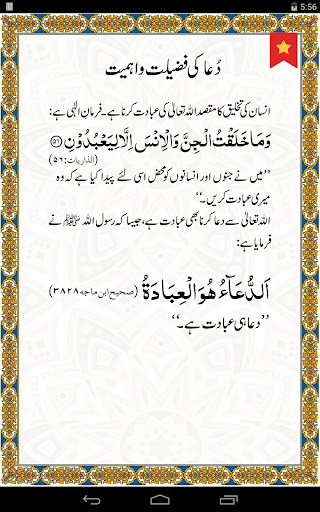 5:56
دُعا کی فضیلت و اہمیت
انسان کی تخلیق کا مقصد اللہ تعالیٰ کی عبادت کرنا ہے۔ فرمانِ الٰہی ہے:
وَمَا خَلَقْتُ الْجِنَّ وَالْاِنْسَ اِلَّا لِيَعْبُدُوْنِ ﴿٥٦﴾
(الذاریات:۵۶)
’’میں نے جنوں اور انسانوں کو محض اسی لئے پیدا کیا ہے کہ وہ
میری عبادت کریں۔‘‘
اللہ تعالیٰ سے دعا کرنا بھی عبادت ہے، جیسا کہ رسول اللہ ﷺ نے
فرمایا ہے:
اَلدُّعَآءُ هُوَ الْعِبَادَةُ (صحیح ابن ماجه ۳۸۲۸)
’’دعا ہی عبادت ہے۔‘‘